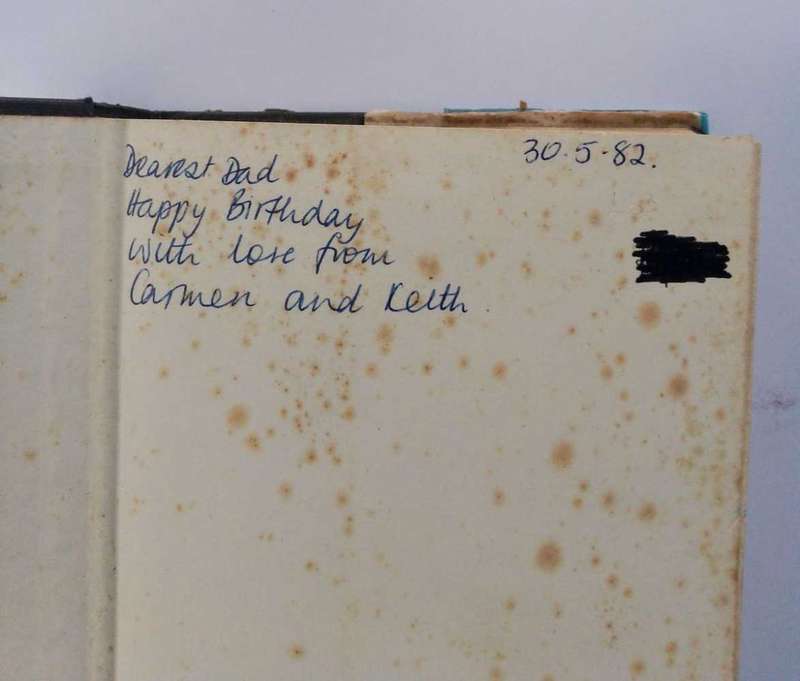 30.5.82.
Dearest Dad
Happy Birthday
with love from
Carmen and Keith.